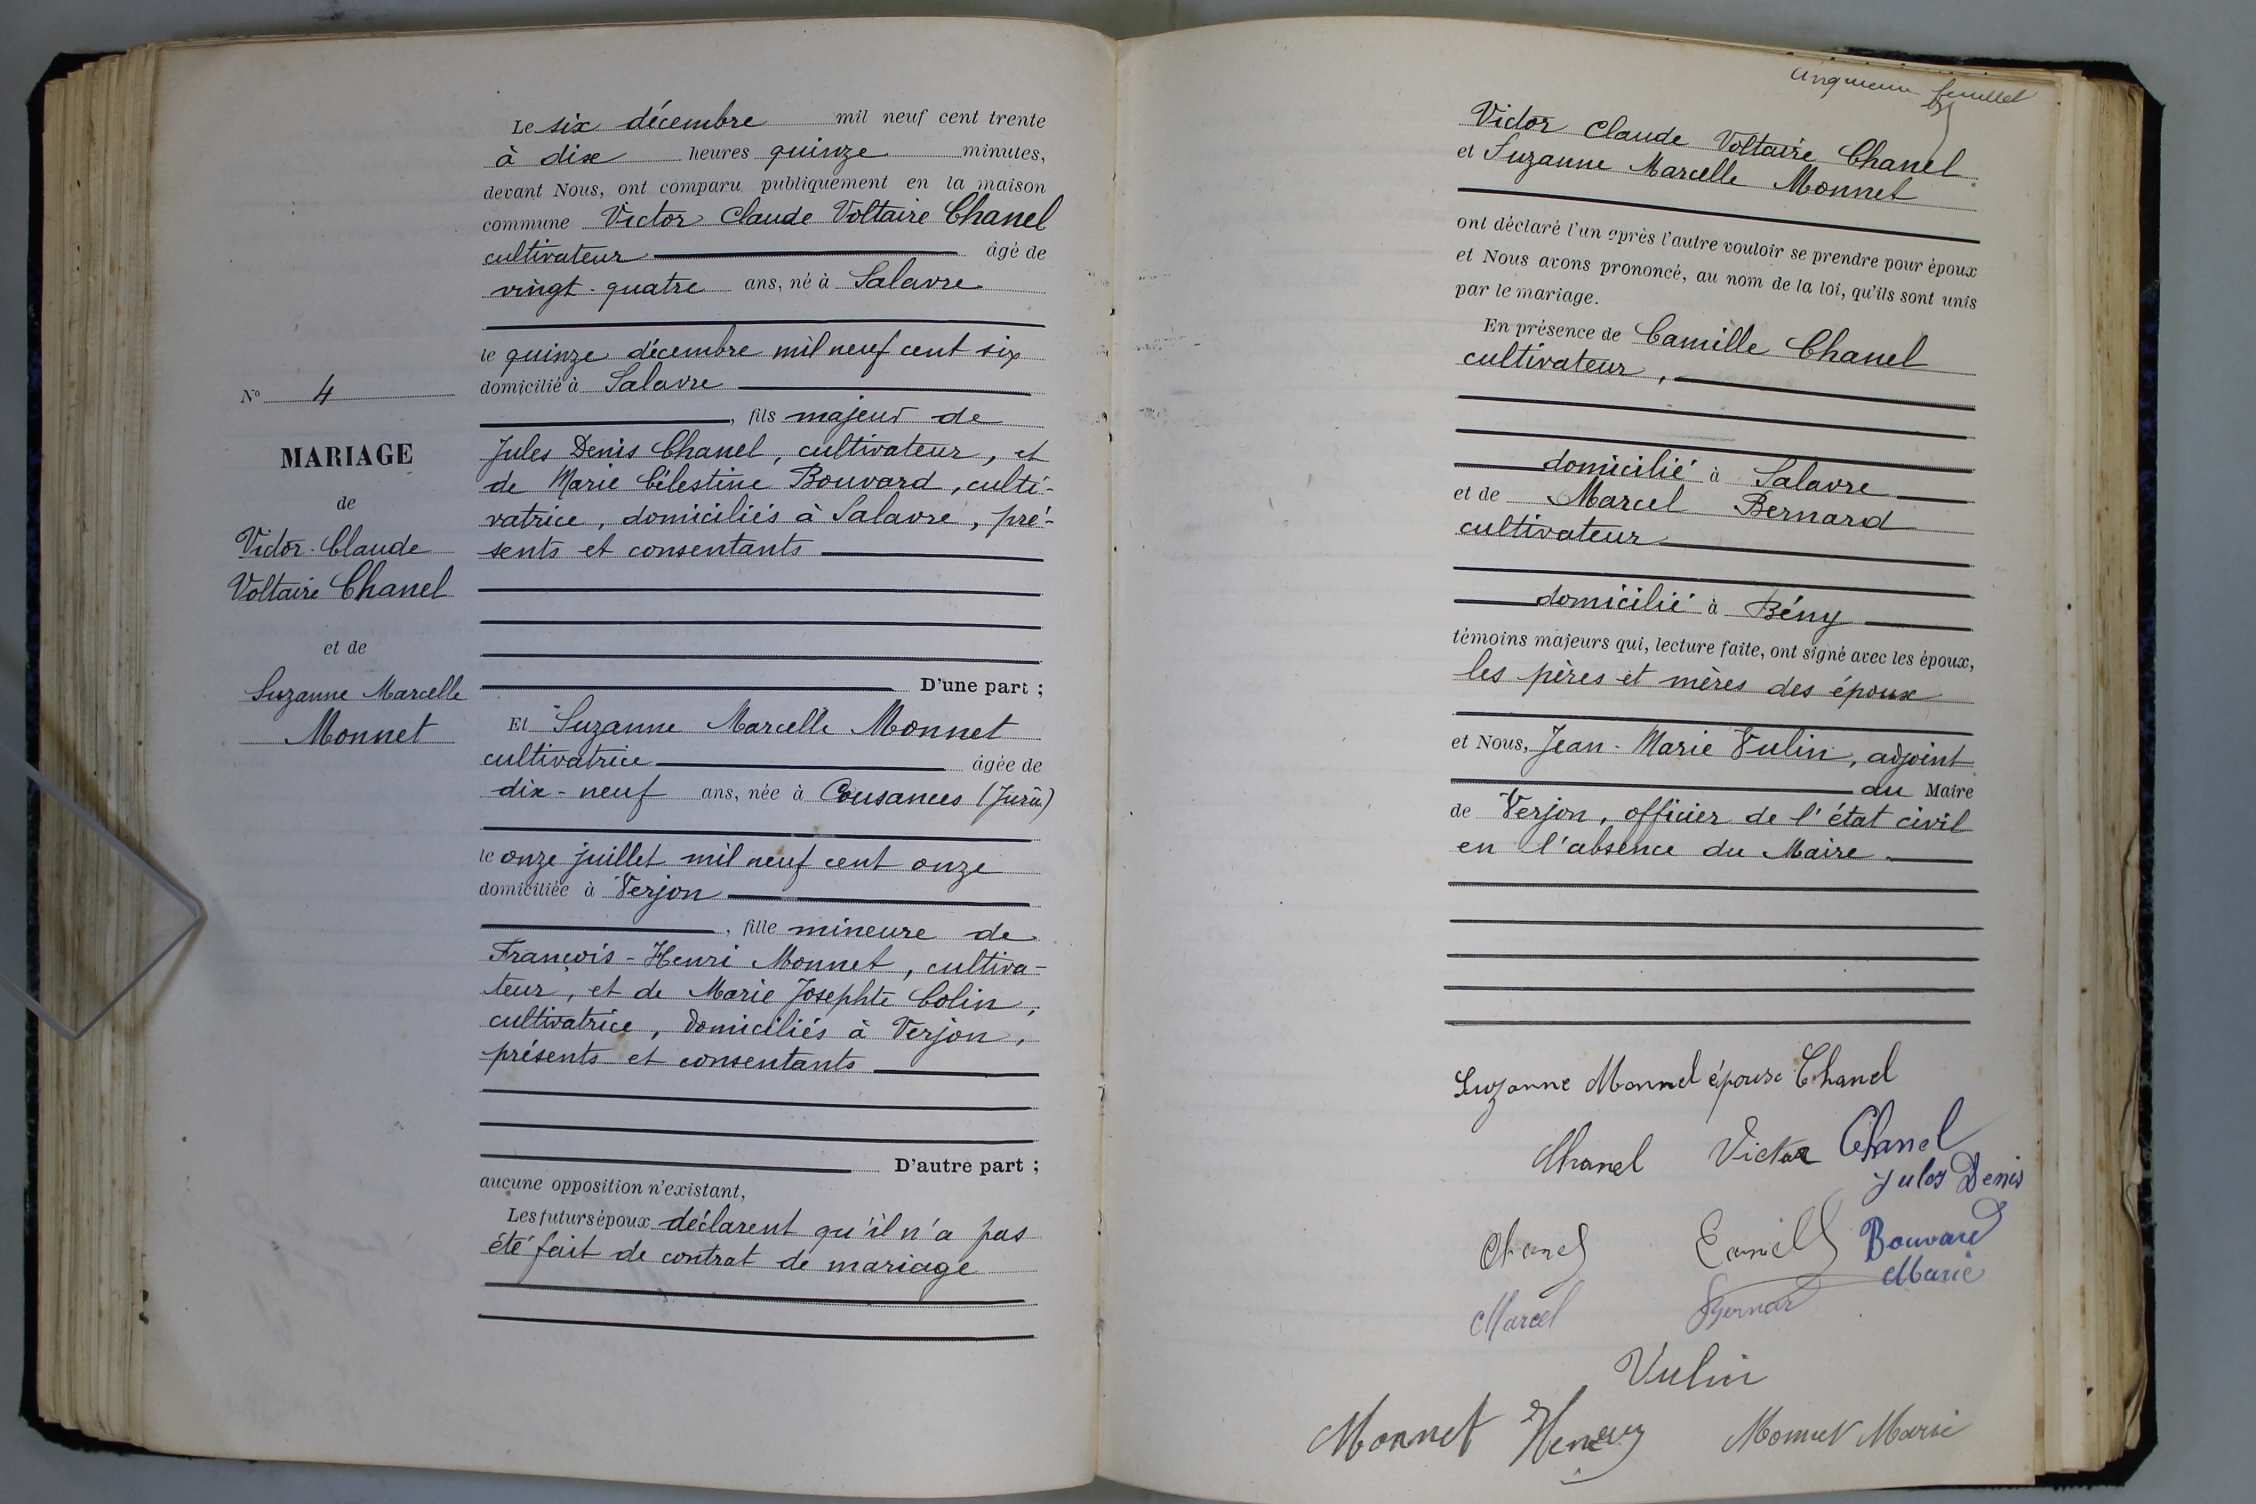 Le six décembre mil neuf cent trente
à dix heures quinze minutes,
devant Nous, ont comparu publiquement en la maison
commune Victor Claude Voltaire Chanel
cultivateur âgé de
vingt-quatre ans, né à Salavre
le quinze décembre mil neuf cent six
domicilié à Salavre
, fils majeur de
Jules Denis Chanel, cultivateur, et
de Marie Célestine Bouvard, culti-
vatrice, domiciliés à Salavre, pré-
sents et consentants
D'une part ;
Et Suzanne Marcelle Monnet
cultivatrice âgée de
dix-neuf ans, née à Cousances (Jura)
le onze juillet mil neuf cent onze
domiciliée à Verjon
, fille mineure de
François-Henri Monnet, cultiva-
teur, et de Marie Josephte Colin,
cultivatrice, domiciliés à Verjon,
présents et consentants
D'autre part ;
aucune opposition n'existant,
Les futurs époux déclarent qu'il n'a pas
été fait de contrat de mariage
N° 4
MARIAGE
de
Victor-Claude
Voltaire Chanel
et de
Suzanne Marcelle
Monnet
feuillet
Victor Claude Voltaire Chanel
et Suzanne Marcelle Monnet
ont déclaré l'un après l'autre vouloir se prendre pour époux
et Nous avons prononcé, au nom de la loi, qu'ils sont unis
par le mariage.
En présence de Camille Chanel
cultivateur,
domicilié à Salavre
et de Marcel Bernard
cultivateur
domicilié à Bény
témoins majeurs qui, lecture faite, ont signé avec les époux,
les pères et mères des époux
et Nous, Jean-Marie Vulin, adjoint
au Maire
de Verjon, officier de l'état civil
en l'absence du Maire.
Suzanne Monnet épouse Chanel
Chanel Victor Chanel
Jules Denis
Chanel Camille Bouvard
Marie
Marcel Bernard
Vulin
Monnet Henry Monnet Marie